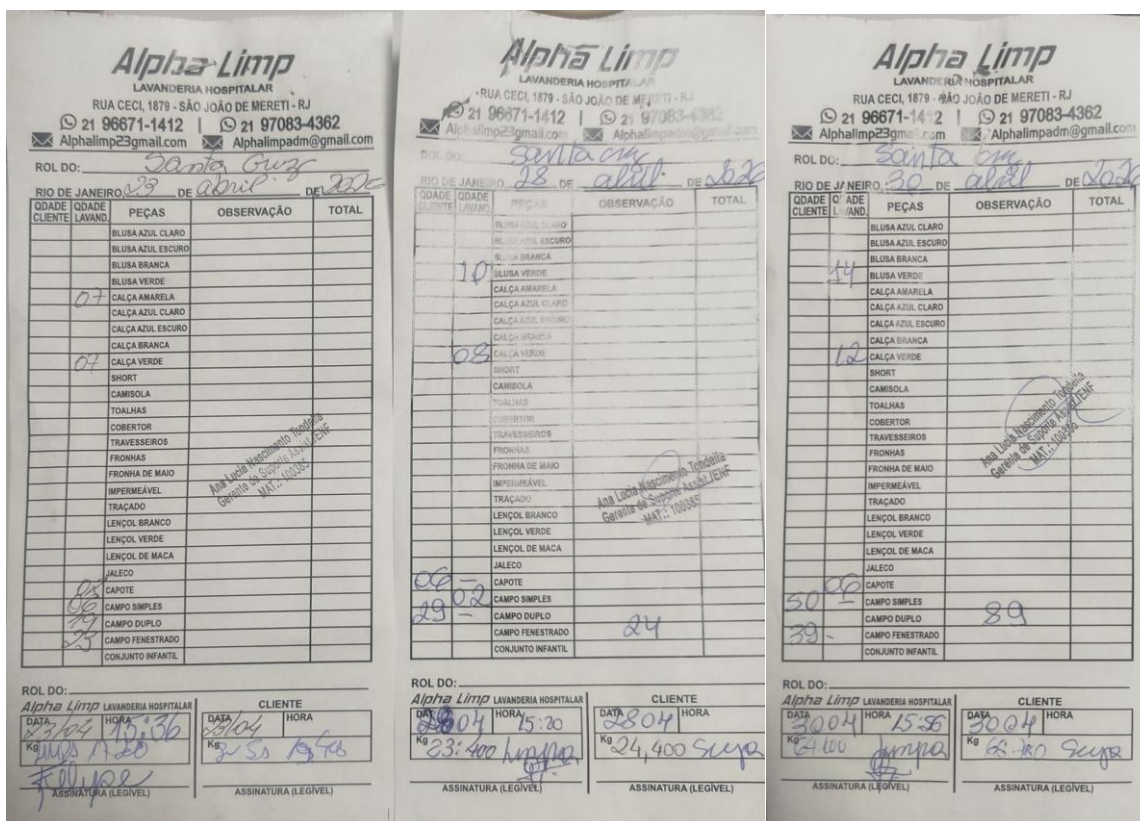 Alpha Limp
LAVANDERIA HOSPITALAR
RUA CECI, 1879 - SÃO JOÃO DE MERETI - RJ
21 96671-1412 | 21 97083-4362
Alphalimp23@gmail.com Alphalimpadm@gmail.com
ROL DO: Santa Cruz
RIO DE JANEIRO, 23 DE abril DE 2026
QDADE CLIENTE QDADE LAVAND. PEÇAS OBSERVAÇÃO TOTAL
BLUSA AZUL CLARO
BLUSA AZUL ESCURO
BLUSA BRANCA
BLUSA VERDE
07 CALÇA AMARELA
CALÇA AZUL CLARO
CALÇA AZUL ESCURO
CALÇA BRANCA
07 CALÇA VERDE
SHORT
CAMISOLA
TOALHAS
COBERTOR
TRAVESSEIROS
FRONHAS
FRONHA DE MAIO
IMPERMEÁVEL
TRAÇADO
LENÇOL BRANCO
LENÇOL VERDE
LENÇOL DE MACA
JALECO
CAPOTE
06 CAMPO SIMPLES
19 CAMPO DUPLO
23 CAMPO FENESTRADO
CONJUNTO INFANTIL
Ana Lucia Nascimento Tondella
Gerente de Suporte Assist/ENF
MAT.: 100385
ROL DO:
Alpha Limp LAVANDERIA HOSPITALAR CLIENTE
DATA 23/04 HORA 15:36 DATA 23/04 HORA
Kg Kg
Felype
ASSINATURA (LEGÍVEL) ASSINATURA (LEGÍVEL)
Alpha Limp
LAVANDERIA HOSPITALAR
RUA CECI, 1879 - SÃO JOÃO DE MERETI - RJ
21 96671-1412 | 21 97083-4362
Alphalimp23gmail.com Alphalimpadm@gmail.com
ROL DO: Santa cruz
RIO DE JANEIRO, 28 DE abril DE 2026
QDADE CLIENTE QDADE LAVAND. PEÇAS OBSERVAÇÃO TOTAL
BLUSA AZUL CLARO
BLUSA AZUL ESCURO
BLUSA BRANCA
10 BLUSA VERDE
CALÇA AMARELA
CALÇA AZUL CLARO
CALÇA AZUL ESCURO
CALÇA BRANCA
08 CALÇA VERDE
SHORT
CAMISOLA
TOALHAS
COBERTOR
TRAVESSEIROS
FRONHAS
FRONHA DE MAIO
IMPERMEÁVEL
TRAÇADO
LENÇOL BRANCO
LENÇOL VERDE
LENÇOL DE MACA
JALECO
06 - CAPOTE
02 CAMPO SIMPLES
29 - CAMPO DUPLO
CAMPO FENESTRADO 24
CONJUNTO INFANTIL
Ana Lucia Nascimento Tondella
Gerente de Suporte Assist/ENF
MAT.: 100385
ROL DO:
Alpha Limp LAVANDERIA HOSPITALAR CLIENTE
DATA 2804 HORA 15:20 DATA 2804 HORA
Kg 23:400 Limpa Kg 24,400 Suja
ASSINATURA (LEGÍVEL) ASSINATURA (LEGÍVEL)
Alpha Limp
LAVANDERIA HOSPITALAR
RUA CECI, 1879 - SÃO JOÃO DE MERETI - RJ
21 96671-1412 | 21 97083-4362
Alphalimp23gmail.com Alphalimpadm@gmail.com
ROL DO: Santa cruz
RIO DE JANEIRO, 30 DE abril DE 2026
QDADE CLIENTE QDADE LAVAND. PEÇAS OBSERVAÇÃO TOTAL
BLUSA AZUL CLARO
BLUSA AZUL ESCURO
BLUSA BRANCA
14 BLUSA VERDE
CALÇA AMARELA
CALÇA AZUL CLARO
CALÇA AZUL ESCURO
CALÇA BRANCA
12 CALÇA VERDE
SHORT
CAMISOLA
TOALHAS
COBERTOR
TRAVESSEIROS
FRONHAS
FRONHA DE MAIO
IMPERMEÁVEL
TRAÇADO
LENÇOL BRANCO
LENÇOL VERDE
LENÇOL DE MACA
JALECO
06 CAPOTE
50 - CAMPO SIMPLES
CAMPO DUPLO 89
39 - CAMPO FENESTRADO
CONJUNTO INFANTIL
Ana Lucia Nascimento Tondella
Gerente de Suporte Assist/ENF
MAT.: 100385
ROL DO:
Alpha Limp LAVANDERIA HOSPITALAR CLIENTE
DATA 3004 HORA 15:56 DATA 3004 HORA
Kg Limpa Kg Suja
ASSINATURA (LEGÍVEL) ASSINATURA (LEGÍVEL)